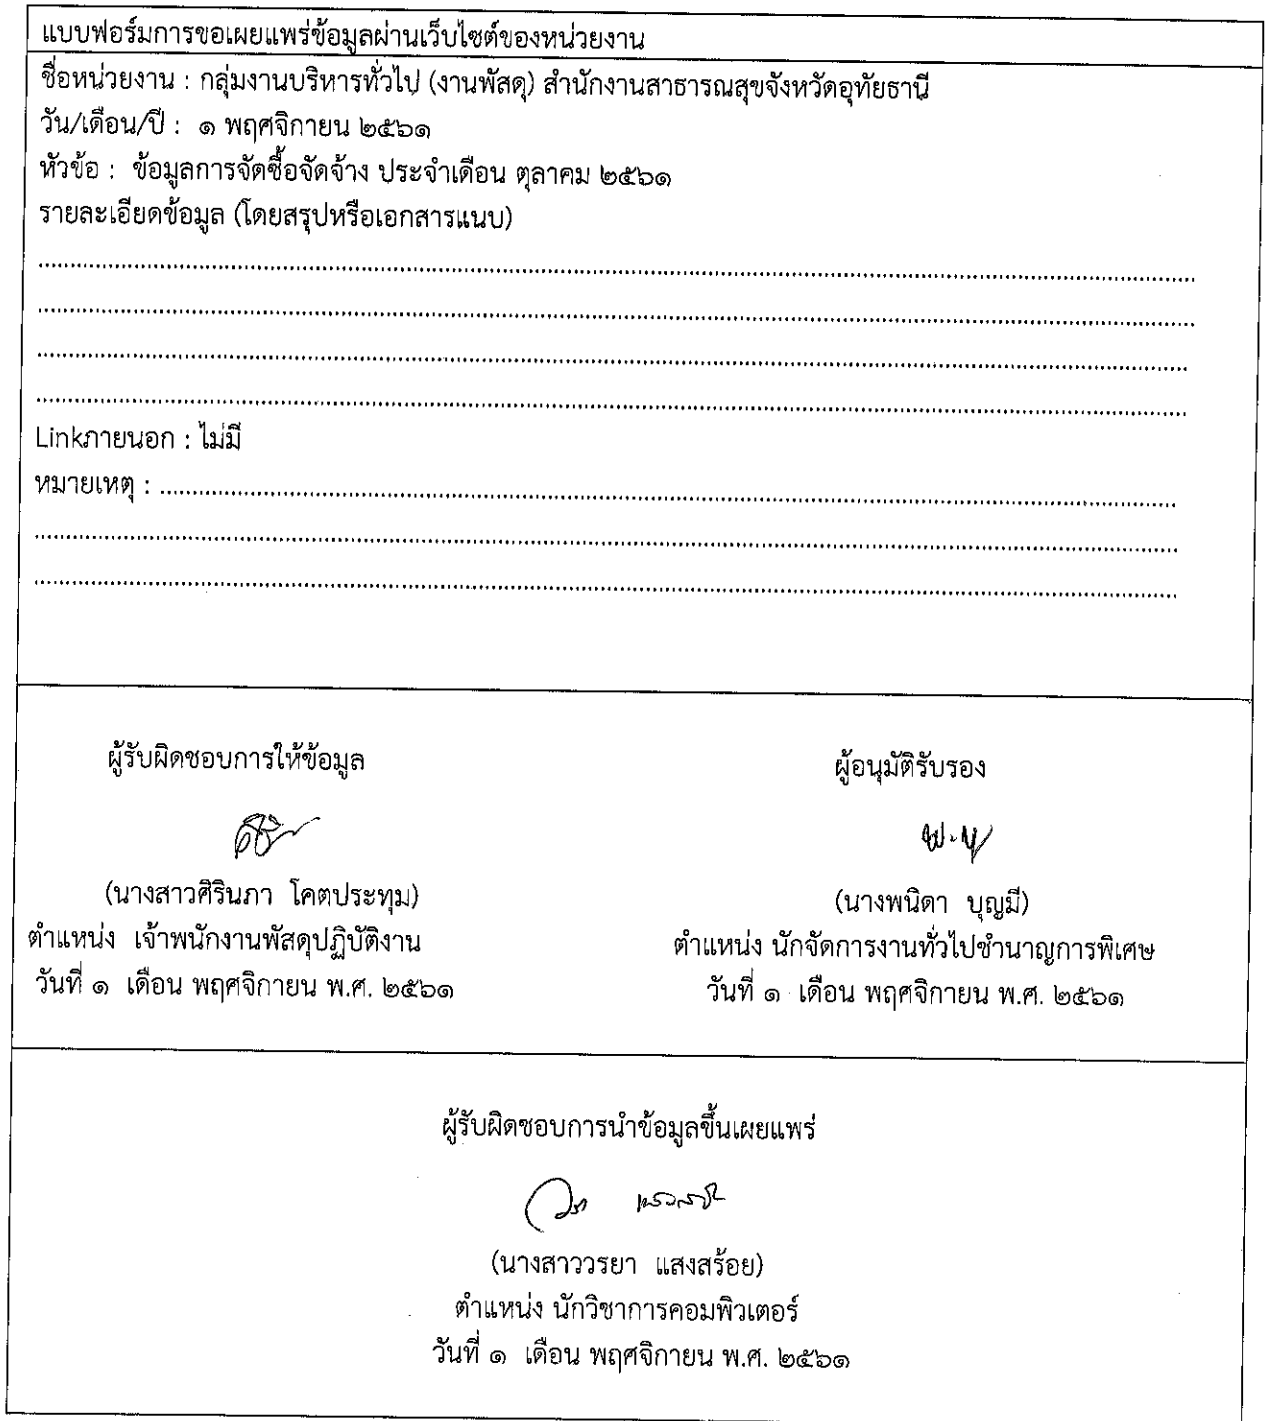 แบบฟอร์มการขอเผยแพร่ข้อมูลผ่านเว็บไซต์ของหน่วยงาน
ชื่อหน่วยงาน : กลุ่มงานบริหารทั่วไป (งานพัสดุ) สำนักงานสาธารณสุขจังหวัดอุทัยธานี
วัน/เดือน/ปี : ๑ พฤศจิกายน ๒๕๖๑
หัวข้อ : ข้อมูลการจัดซื้อจัดจ้าง ประจำเดือน ตุลาคม ๒๕๖๑
รายละเอียดข้อมูล (โดยสรุปหรือเอกสารแนบ)
Linkภายนอก : ไม่มี
หมายเหตุ :
ผู้รับผิดชอบการให้ข้อมูล
(นางสาวศิรินภา โคตประทุม)
ตำแหน่ง เจ้าพนักงานพัสดุปฏิบัติงาน
วันที่ ๑ เดือน พฤศจิกายน พ.ศ. ๒๕๖๑
ผู้อนุมัติรับรอง
(นางพนิดา บุญมี)
ตำแหน่ง นักจัดการงานทั่วไปชำนาญการพิเศษ
วันที่ ๑ เดือน พฤศจิกายน พ.ศ. ๒๕๖๑
ผู้รับผิดชอบการนำข้อมูลขึ้นเผยแพร่
(นางสาววรยา แสงสร้อย)
ตำแหน่ง นักวิชาการคอมพิวเตอร์
วันที่ ๑ เดือน พฤศจิกายน พ.ศ. ๒๕๖๑